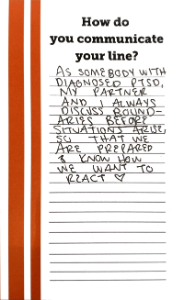 How do
you communicate
your line?
AS SOMEBODY WITH
DIAGNOSED PTSD,
MY PARTNER
AND I ALWAYS
DISCUSS BOUND-
ARIES BEFORE
SITUATIONS ARISE,
SO THAT WE
ARE PREPARED
& KNOW HOW
WE WANT TO
REACT ♡